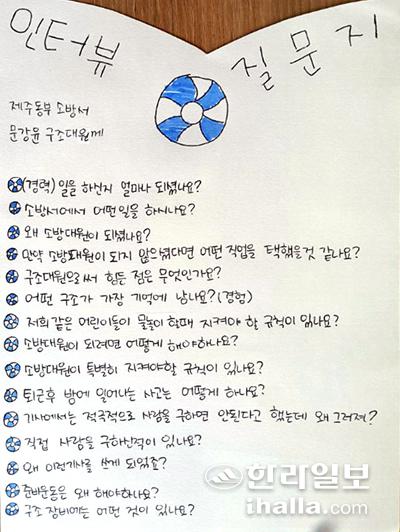 인터뷰 질문지
제주동부 소방서
문강윤 구조대원께
(경력) 일을 하신지 얼마나 되셨나요?
소방서에서 어떤일을 하시나요?
왜 소방대원이 되셨나요?
만약 소방대원이 되지 않으셨다면 어떤 직업을 택했을것 같나요?
구조대원으로써 힘든 점은 무엇인가요?
어떤 구조가 가장 기억에 남나요?(경험)
저희 같은 어린이들이 물놀이 할때 지켜야 할 규칙이 있나요?
소방대원이 되려면 어떻게 해야하나요?
소방대원이 특별히 지켜야할 규칙이 있나요?
퇴근후 밤에 일어나는 사고는 어떻게 하나요?
기사에서는 적극적으로 사람을 구하면 안된다고 했는데 왜 그러져?
직접 사람을 구하신적이 있나요?
왜 이런기사를 쓰게 되었죠?
준비운동은 왜 해야하나요?
구조 장비에는 어떤 것이 있나요?
한라일보
ihalla.com